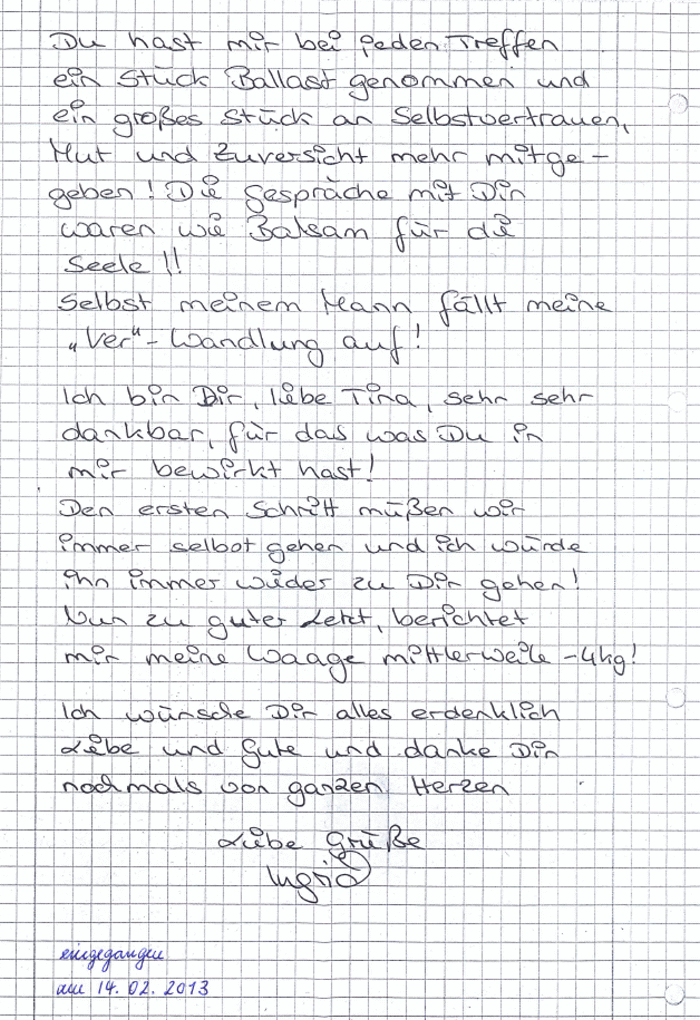 Du hast mir bei jeden Treffen
ein Stück Ballast genommen und
ein großes Stück an Selbstvertrauen,
Mut und Zuversicht mehr mitge-
geben! Die Gespräche mit Dir
waren wie Balsam für die
Seele!!
Selbst meinem Mann fällt meine
„Ver"-Wandlung auf!
Ich bin Dir, liebe Tina, sehr sehr
dankbar, für das was Du in
mir bewirkt hast!
Den ersten Schritt müßen wir
immer selbst gehen und ich würde
ihn immer wieder zu Dir gehen!
Nun zu guter Letzt, berichtet
mir meine Waage mittlerweile -4kg!
Ich wünsche Dir alles erdenklich
Liebe und Gute und danke Dir
nochmals von ganzen Herzen
Liebe Grüße
Ingrid
eingegangen
am 14.02.2013